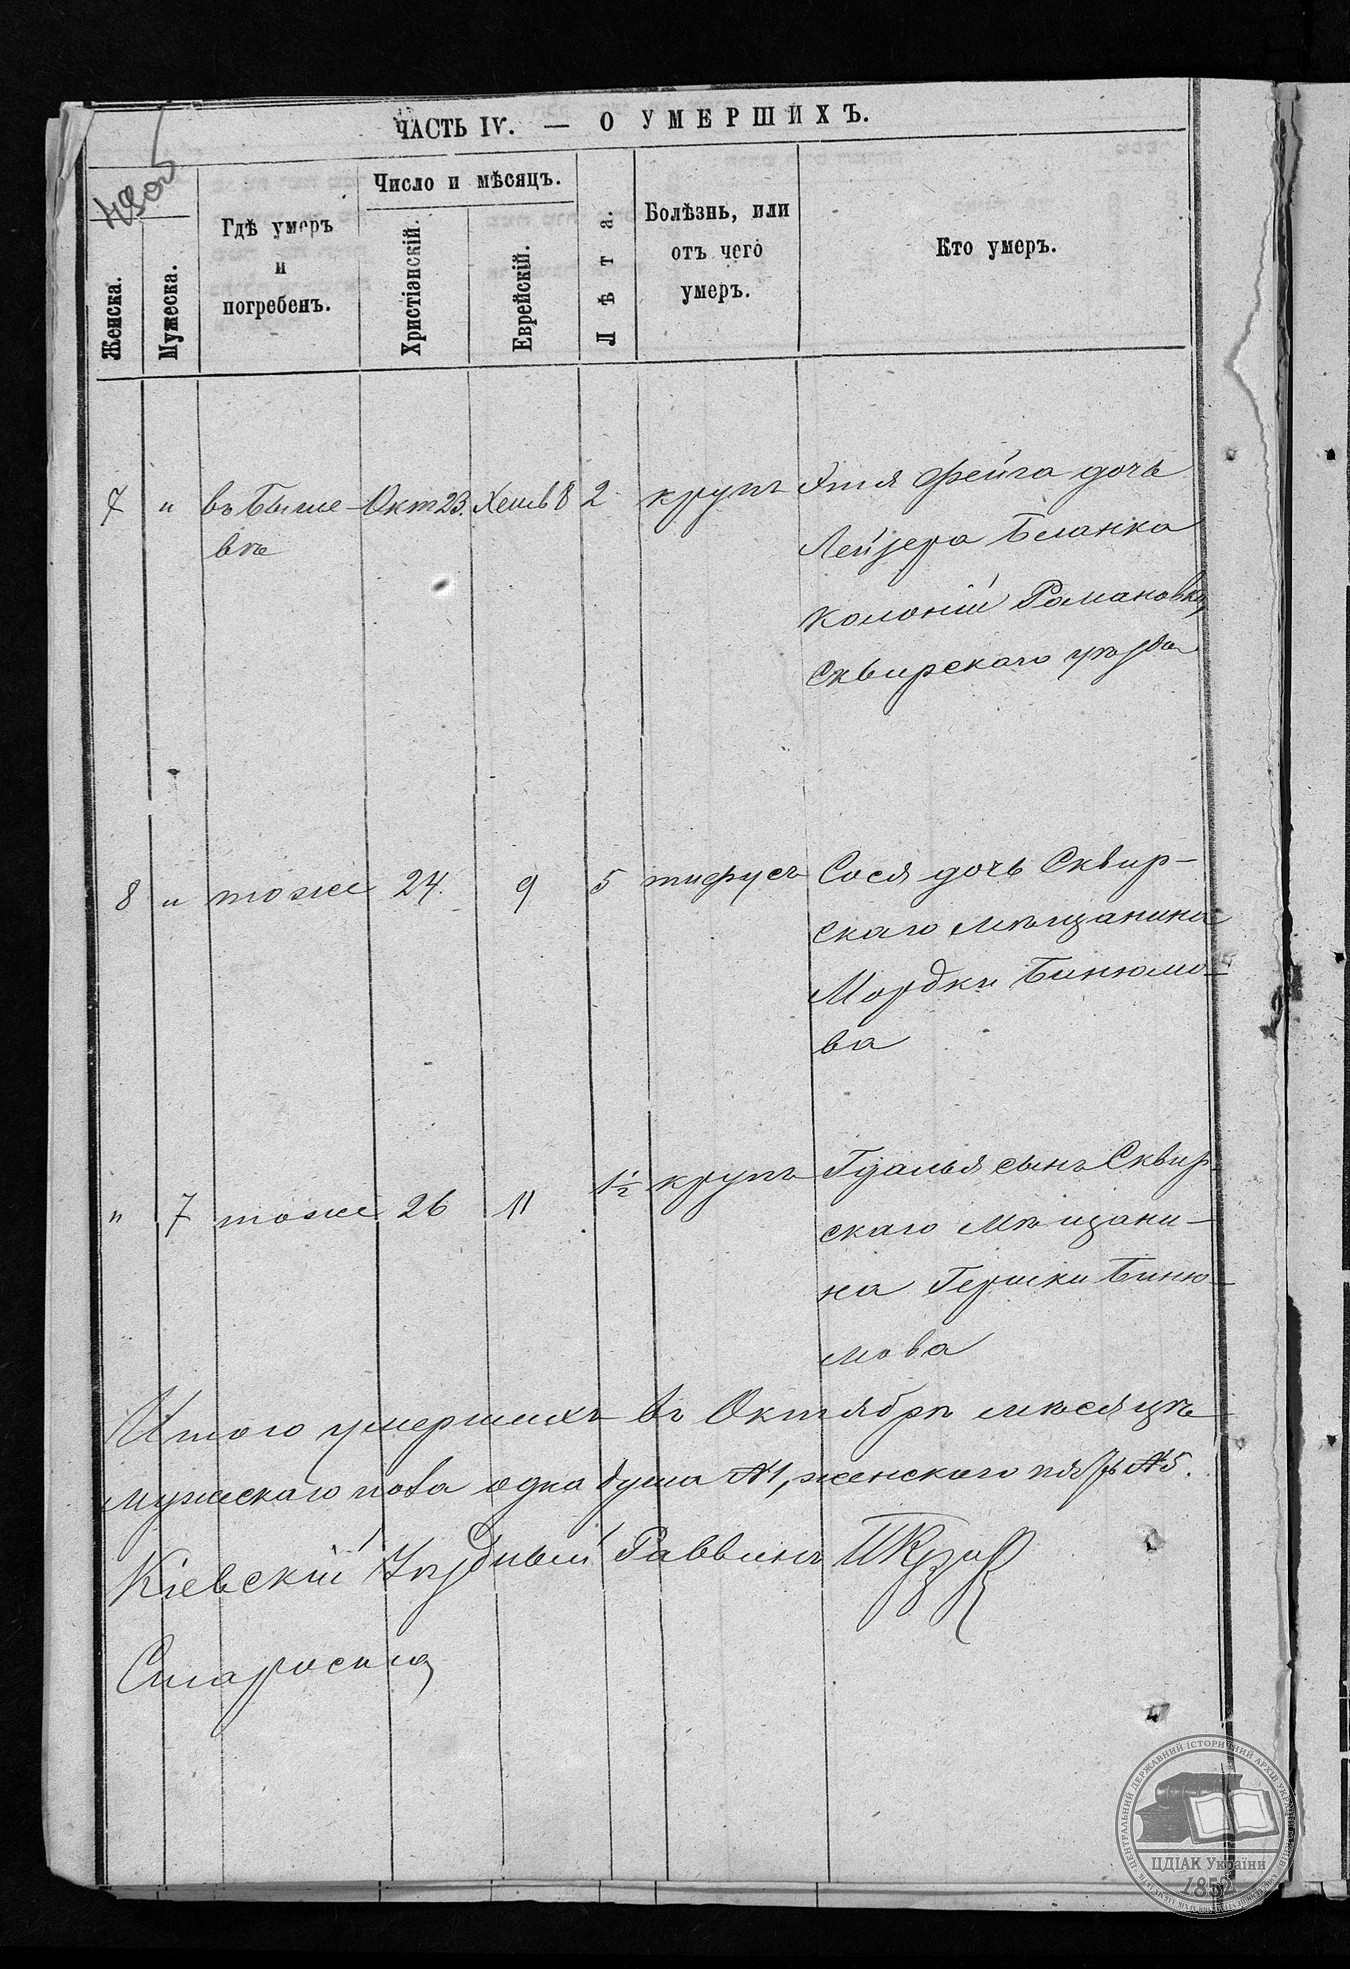 ЧАСТЬ IV. — О УМЕРШИХЪ.
Женска.
Мужеска.
Гдѣ умеръ
и
погребенъ.
Число и мѣсяцъ.
Христіанскій.
Еврейскій.
Лѣта.
Болѣзнь, или
отъ чего
умеръ.
Кто умеръ.
7 " въ Быше- Окт 23. Хешв 8 2 крупъ Этя Фейга дочь
вѣ
Лейзера Бланка
колоніи Романовка,
Сквирскаго уѣзда
8 " тоже 24. 9 5 тифусъ Сося дочь Сквир-
скаго мѣщанина
Мордки Бинюмо-
ва
" 7 тоже 26 11 1½ крупъ Гдалья сынъ Сквир-
скаго мѣщани-
на Гершки Биню-
мова
Итого умершихъ въ Октябрѣ мѣсяцѣ
мужескаго пола одна душа №1, женскаго пять №5.
Кіевскій Уѣздный Раввинъ
Староста
ЦЕНТРАЛЬНИЙ ДЕРЖАВНИЙ ІСТОРИЧНИЙ АРХІВ УКРАЇНИ
ЦДІАК України
1852